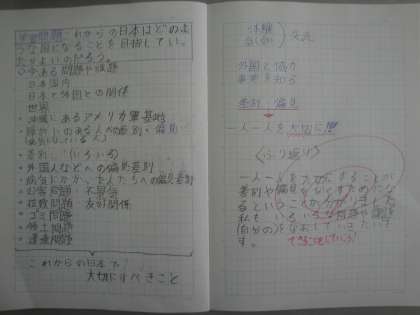 学習問題 これからの日本はどのよ
うな国になることを目指してい
たらよいのだろう。
〇今ある問題や課題
日本国内
日本と外国との関係
世界
・沖縄にあるアメリカ軍基地
・障がいのある人への差別・偏見
・差別(いろいろ)
・外国人などへの偏見差別
・病気にかかった人たちへの偏見差別
・公害問題 不景気
・拉致問題 友好関係
・ゴミ問題
・領土問題
・遺産問題
これからの日本で
大切にすべきこと
体験
交流
外国と協力
事実を知る
差別・偏見
一人一人を大切に
〈ふり返り〉
一人一人を大切にすることが
差別や偏見をなくすために
なるということが分かりました。
私もいろいろな
(自分の)をなおしていきたいで
す。